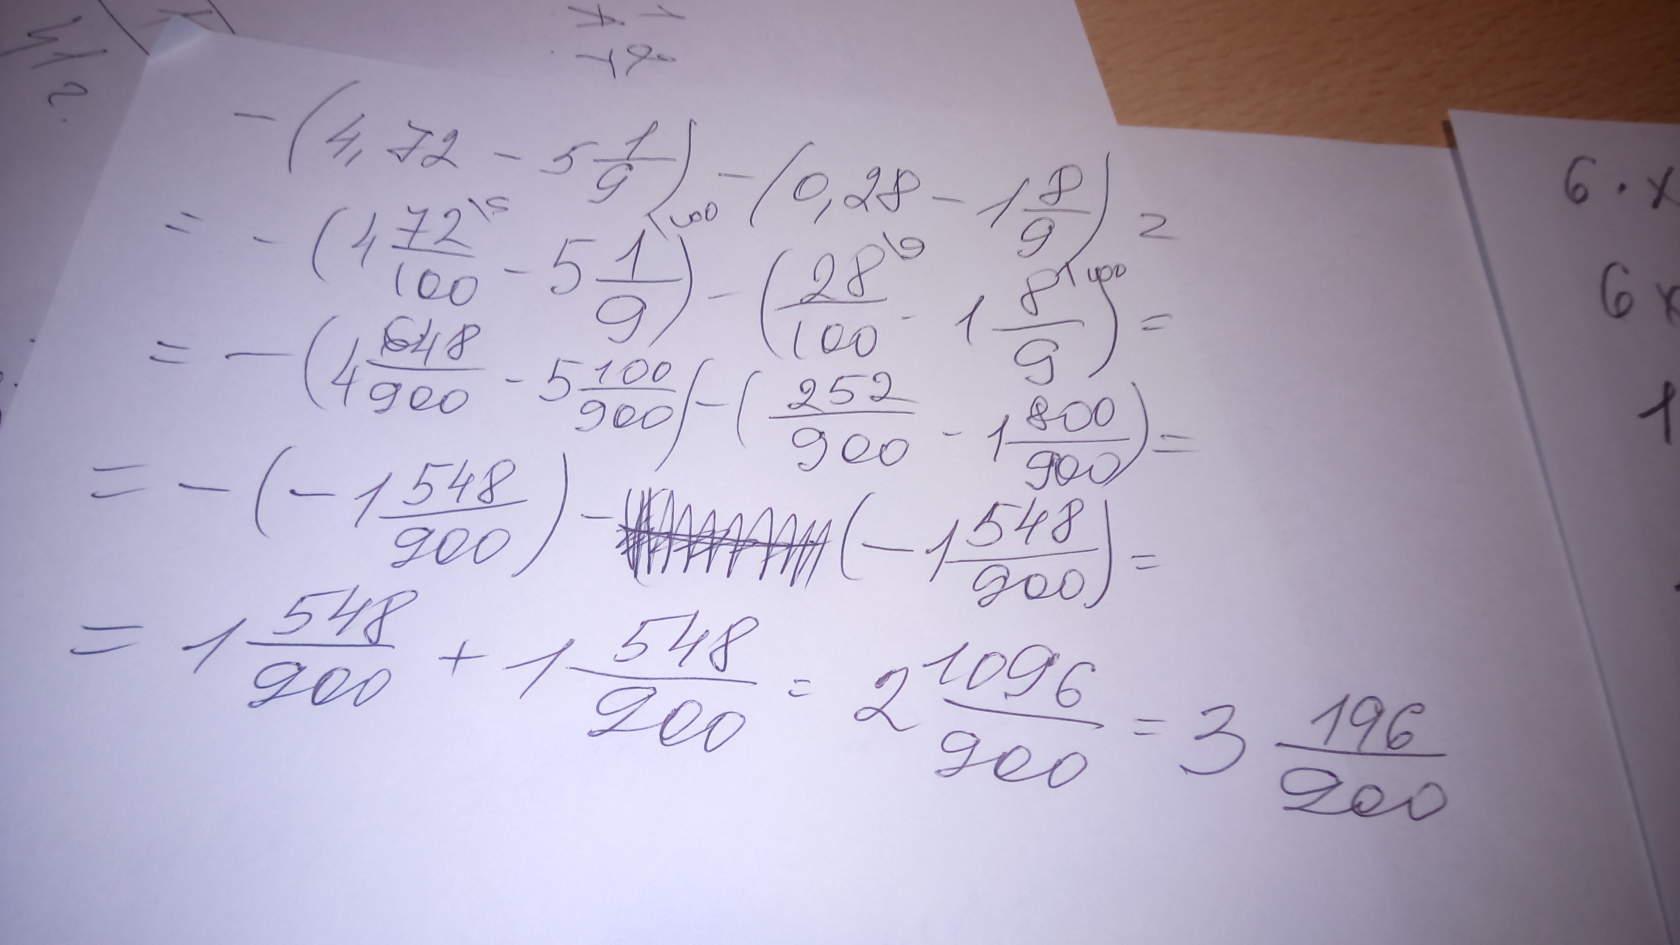 - (4,72 - 5 1/9) - (0,28 - 1 8/9) =
= - (4 72/100 \9 - 5 1/9 \100) - (28/100 \9 - 1 8/9 \100) =
= - (4 648/900 - 5 100/900) - (252/900 - 1 800/900) =
= - (-1 548/900) - (-1 548/900) =
= 1 548/900 + 1 548/900 = 2 1096/900 = 3 196/900
6 · x
6x
1